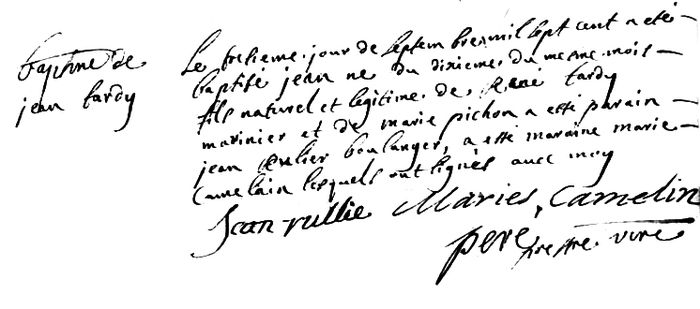 baptme de
jean tardy
Le tresieme jour de septembre mil sept cent a eté
baptisé jean ne du dixieme du mesme mois
fils naturel et legitime de René tardy
marinier et de marie pichon a esté parain
jean rulier boulanger, a esté maraine marie
camelain lesquels ont signés avec moy
Jean rullie Maries, Camelin
pere prestre vire